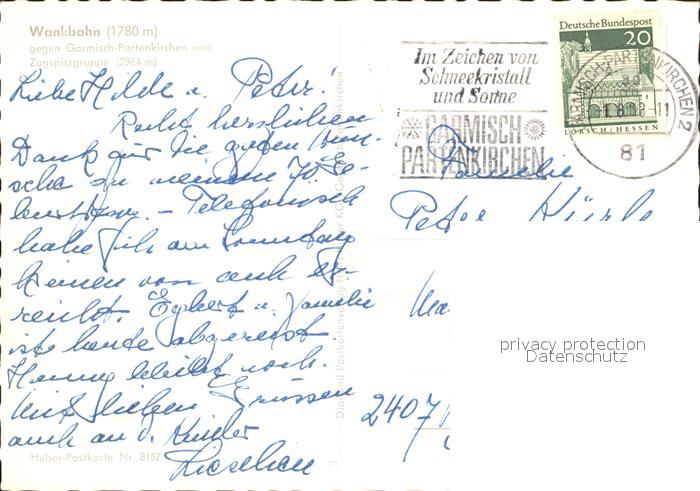 Wankbahn (1780 m)
gegen Garmisch-Partenkirchen und
Zugspitzgruppe (2964 m)
Liebe Hilde u. Peter!
Recht herzlichen
Dank für die guten Wün-
sche zu meinem 70 Ge-
burtstag. - Telefonisch
habe ich am Sonntag
keinen von euch er-
reicht. Egbert u. Familie
ist heute abgereist.
Henny bleibt noch.
Mit lieben Grüssen
auch an d. Kinder
Lieschen
Huber-Postkarte Nr. 8157
Im Zeichen von
Schneekristall
und Sonne
GARMISCH
PARTENKIRCHEN
Deutsche Bundespost
20
LORSCH/HESSEN
GARMISCH-PARTENKIRCHEN 2
81
Familie
Peter
privacy protection
Datenschutz
2407